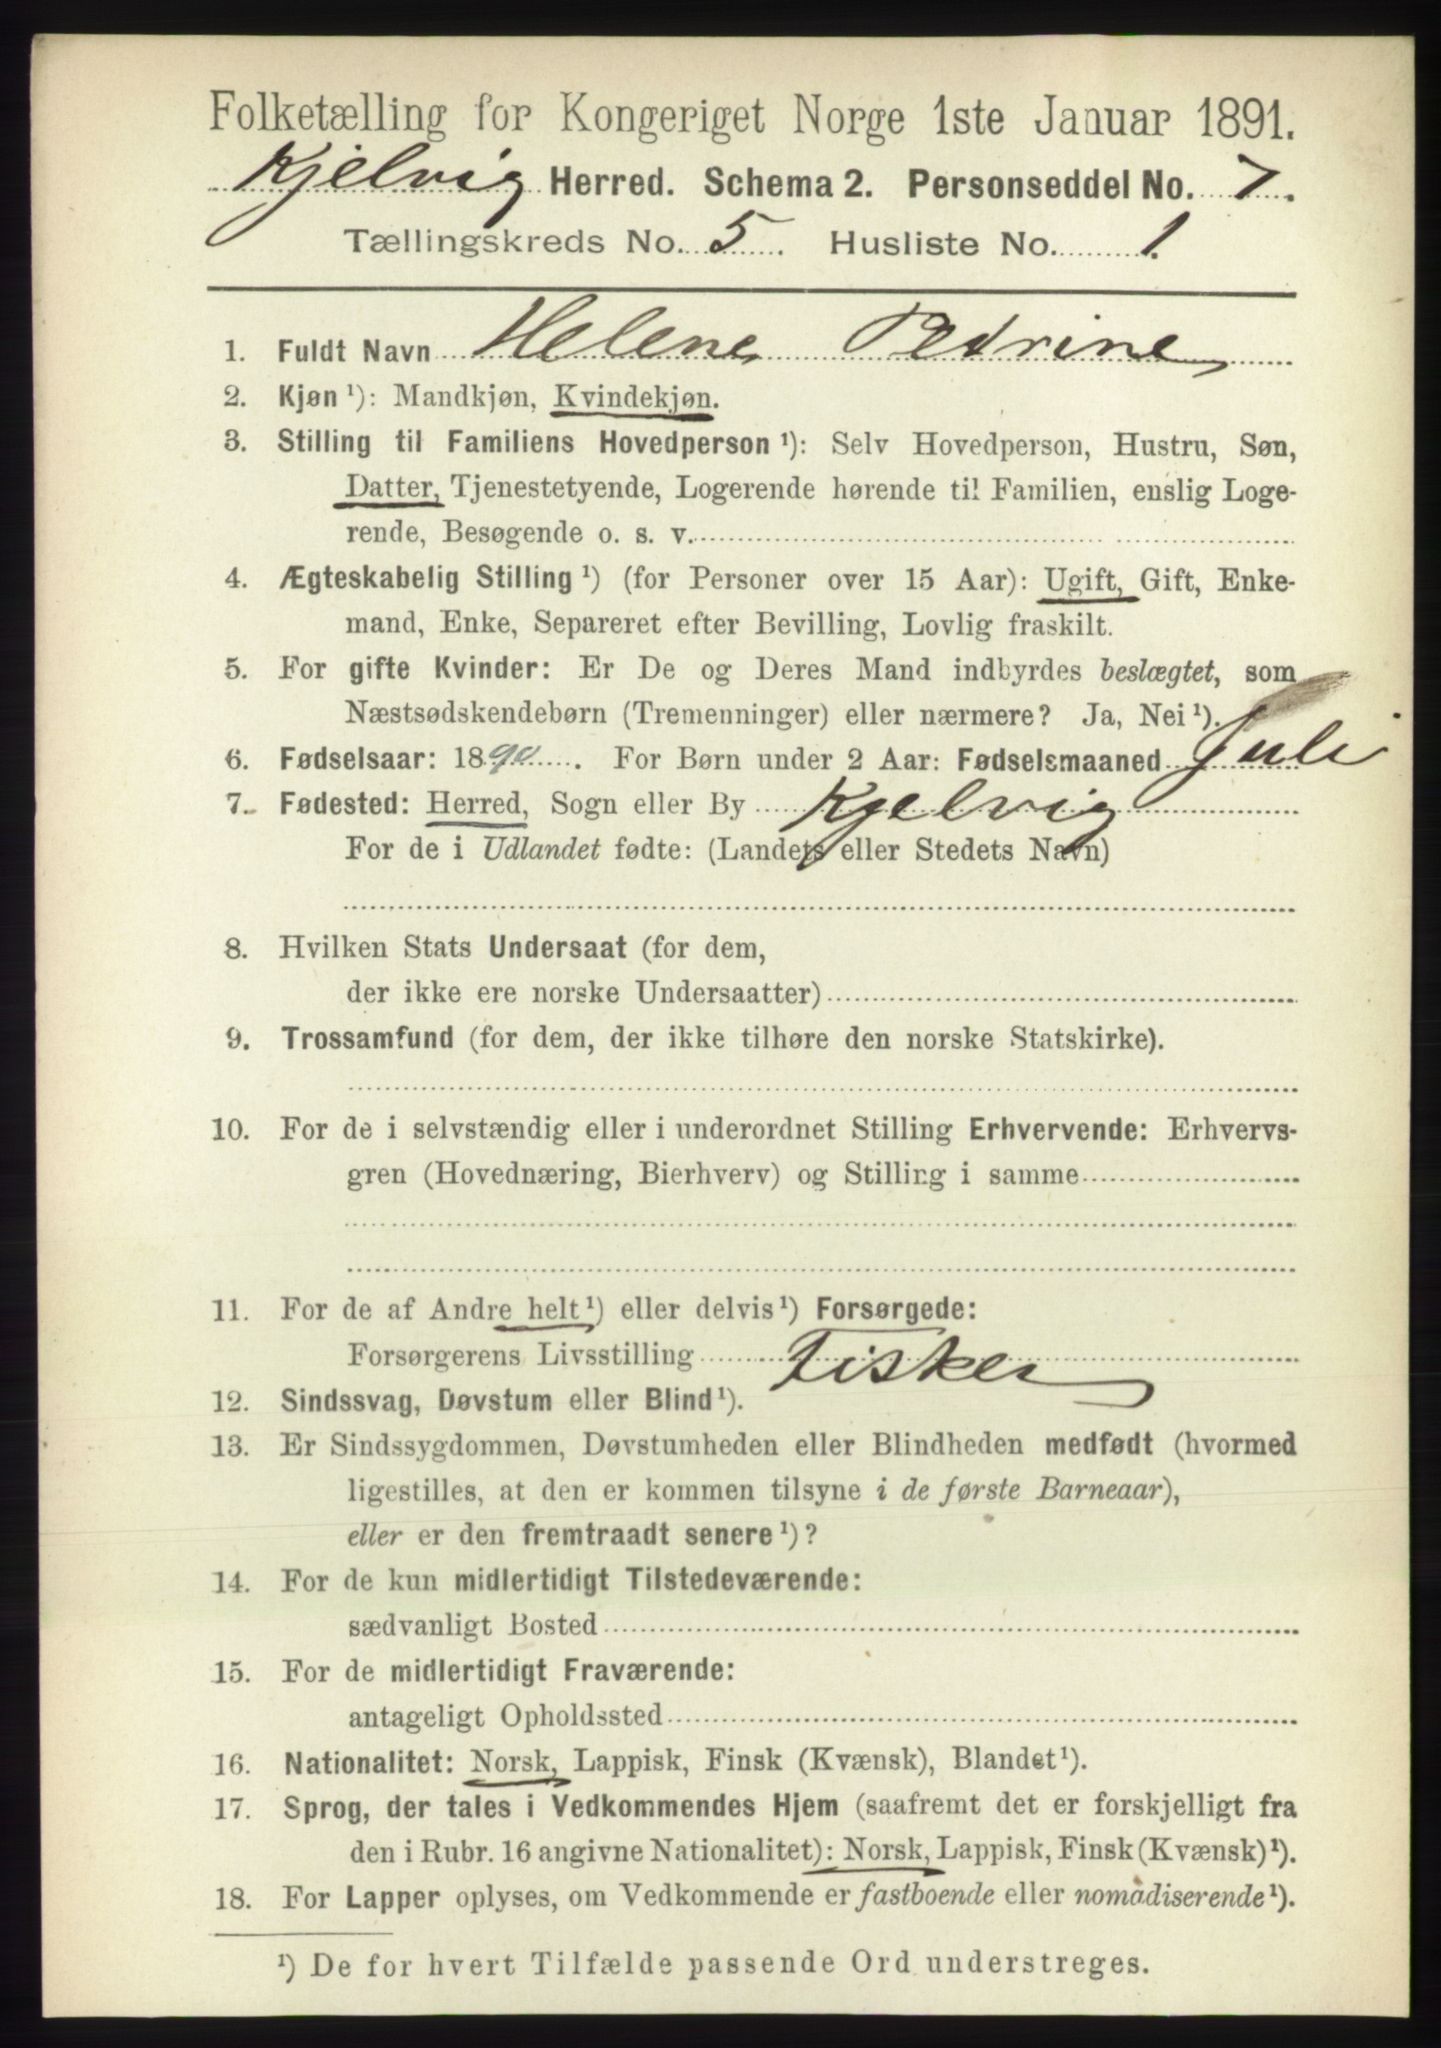 Folketælling for Kongeriget Norge 1ste Januar 1891.
Kjelvig Herred. Schema 2. Personseddel No. 7.
Tællingskreds No. 5. Husliste No. 1.
1. Fuldt Navn Helene Petrine
2. Kjøn ¹): Mandkjøn, Kvindekjøn.
3. Stilling til Familiens Hovedperson ¹): Selv Hovedperson, Hustru, Søn,
Datter, Tjenestetyende, Logerende hørende til Familien, enslig Loge-
rende, Besøgende o. s. v.
4. Ægteskabelig Stilling ¹) (for Personer over 15 Aar): Ugift, Gift, Enke-
mand, Enke, Separeret efter Bevilling, Lovlig fraskilt.
5. For gifte Kvinder: Er De og Deres Mand indbyrdes beslægtet, som
Næstsødskendebørn (Tremenninger) eller nærmere? Ja, Nei ¹).
6. Fødselsaar: 1890. For Børn under 2 Aar: Fødselsmaaned Juli
7. Fødested: Herred, Sogn eller By Kjelvig
For de i Udlandet fødte: (Landets eller Stedets Navn)
8. Hvilken Stats Undersaat (for dem,
der ikke ere norske Undersaatter)
9. Trossamfund (for dem, der ikke tilhøre den norske Statskirke).
10. For de i selvstændig eller i underordnet Stilling Erhvervende: Erhvervs-
gren (Hovednæring, Bierhverv) og Stilling i samme
11. For de af Andre helt ¹) eller delvis ¹) Forsørgede:
Forsørgerens Livsstilling Fisker
12. Sindssvag, Døvstum eller Blind ¹).
13. Er Sindssygdommen, Døvstumheden eller Blindheden medfødt (hvormed
ligestilles, at den er kommen tilsyne i de første Barneaar),
eller er den fremtraadt senere ¹)?
14. For de kun midlertidigt Tilstedeværende:
sædvanligt Bosted
15. For de midlertidigt Fraværende:
antageligt Opholdssted
16. Nationalitet: Norsk, Lappisk, Finsk (Kvænsk), Blandet ¹).
17. Sprog, der tales i Vedkommendes Hjem (saafremt det er forskjelligt fra
den i Rubr. 16 angivne Nationalitet): Norsk, Lappisk, Finsk (Kvænsk) ¹).
18. For Lapper oplyses, om Vedkommende er fastboende eller nomadiserende ¹).
¹) De for hvert Tilfælde passende Ord understreges.